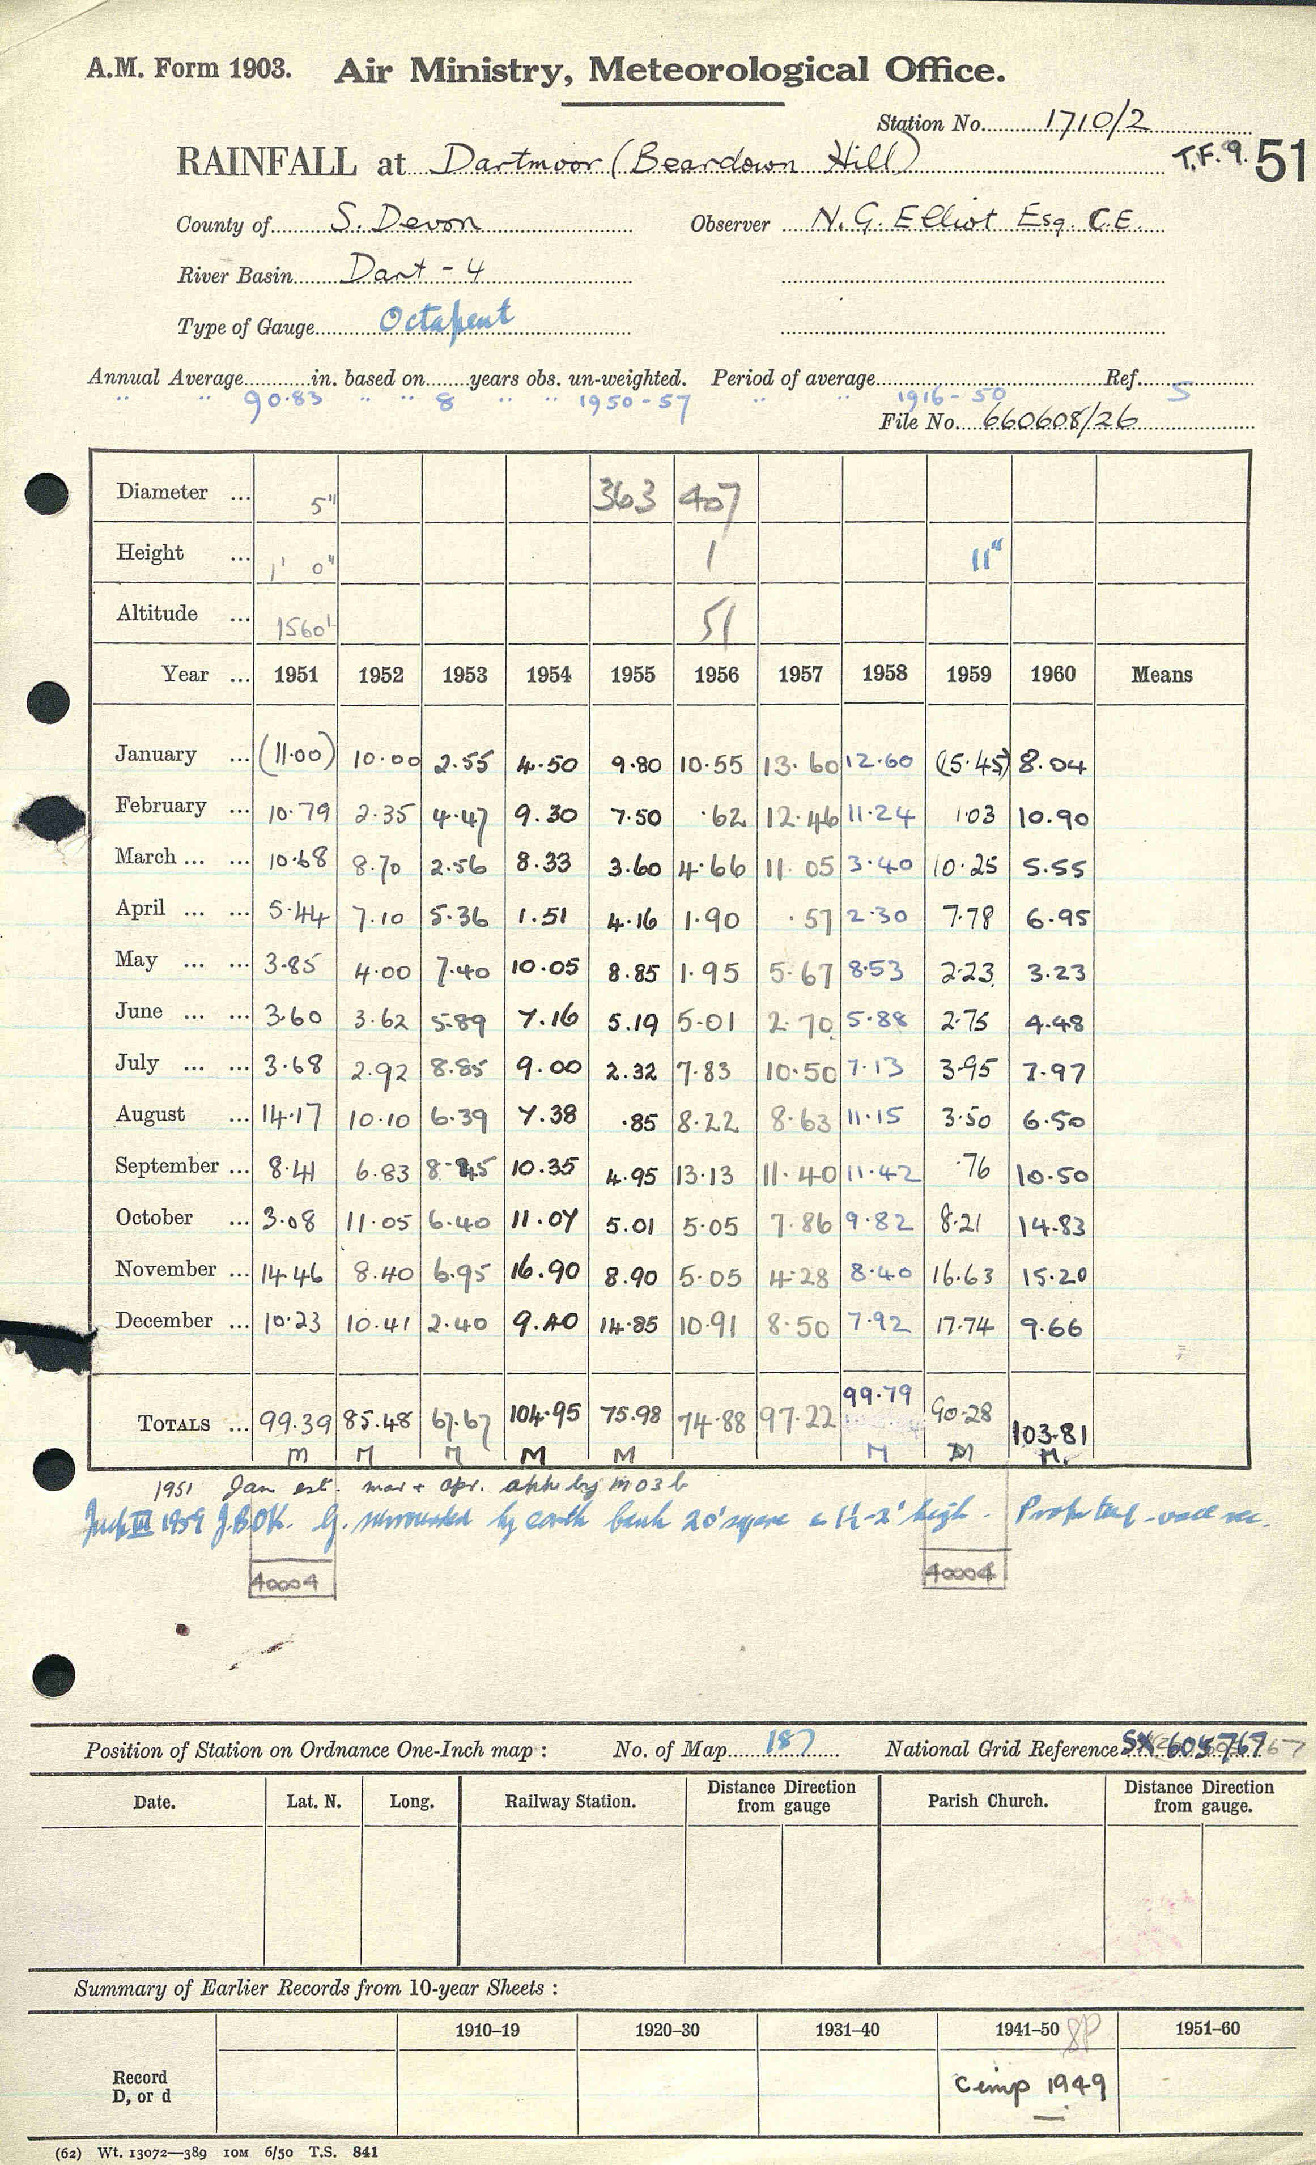 A.M. Form 1903. Air Ministry, Meteorological Office.
Station No. 1710/2
RAINFALL at Dartmoor (Beardown Hill) T.F.9. 51
County of S. Devon Observer N. G. Elliot Esq. C.E.
River Basin Dart - 4
Type of Gauge Octapent
Annual Average in. based on years obs. un-weighted. Period of average Ref.
" " 90.83 " " 8 " " 1950-57 " " 1916-50 5
File No. 660608/26
Diameter ... 5" 363 407
Height ... 1' 0" 1 11"
Altitude ... 1560' 51
Year ... 1951 1952 1953 1954 1955 1956 1957 1958 1959 1960 Means
January ... (11.00) 10.00 2.55 4.50 9.80 10.55 13.60 12.60 (15.45) 8.04
February ... 10.79 2.35 4.47 9.30 7.50 .62 12.46 11.24 1.03 10.90
March ... ... 10.68 8.70 2.56 8.33 3.60 4.66 11.05 3.40 10.25 5.55
April ... ... 5.44 7.10 5.36 1.51 4.16 1.90 .57 2.30 7.78 6.95
May ... ... 3.85 4.00 7.40 10.05 8.85 1.95 5.67 8.53 2.23 3.23
June ... ... 3.60 3.62 5.89 7.16 5.19 5.01 2.70 5.88 2.75 4.48
July ... ... 3.68 2.92 8.85 9.00 2.32 7.83 10.50 7.13 3.95 7.97
August ... 14.17 10.10 6.39 7.38 .85 8.22 8.63 11.15 3.50 6.50
September ... 8.41 6.83 8.45 10.35 4.95 13.13 11.40 11.42 .76 10.50
October ... 3.08 11.05 6.40 11.07 5.01 5.05 7.86 9.82 8.21 14.83
November ... 14.46 8.40 6.95 16.90 8.90 5.05 4.28 8.40 16.63 15.20
December ... 10.23 10.41 2.40 9.40 14.85 10.91 8.50 7.92 17.74 9.66
TOTALS ... 99.39 85.48 67.67 104.95 75.98 74.88 97.22 99.79 90.28 103.81
M M M M M M M M.
1951 Jan est. mar + apr. appr by M O 3 b
III 1959 J.BOK. G. surrounded by earth bank 20' square & 1½-2' high.
40004 40004
Position of Station on Ordnance One-Inch map : No. of Map 187 National Grid Reference SX 603767
Date. Lat. N. Long. Railway Station. Distance Direction from gauge Parish Church. Distance Direction from gauge.
Summary of Earlier Records from 10-year Sheets :
1910–19 1920–30 1931–40 1941–50 8P 1951–60
Record D, or d 1949
(62) Wt. 13072—389 10M 6/50 T.S. 841